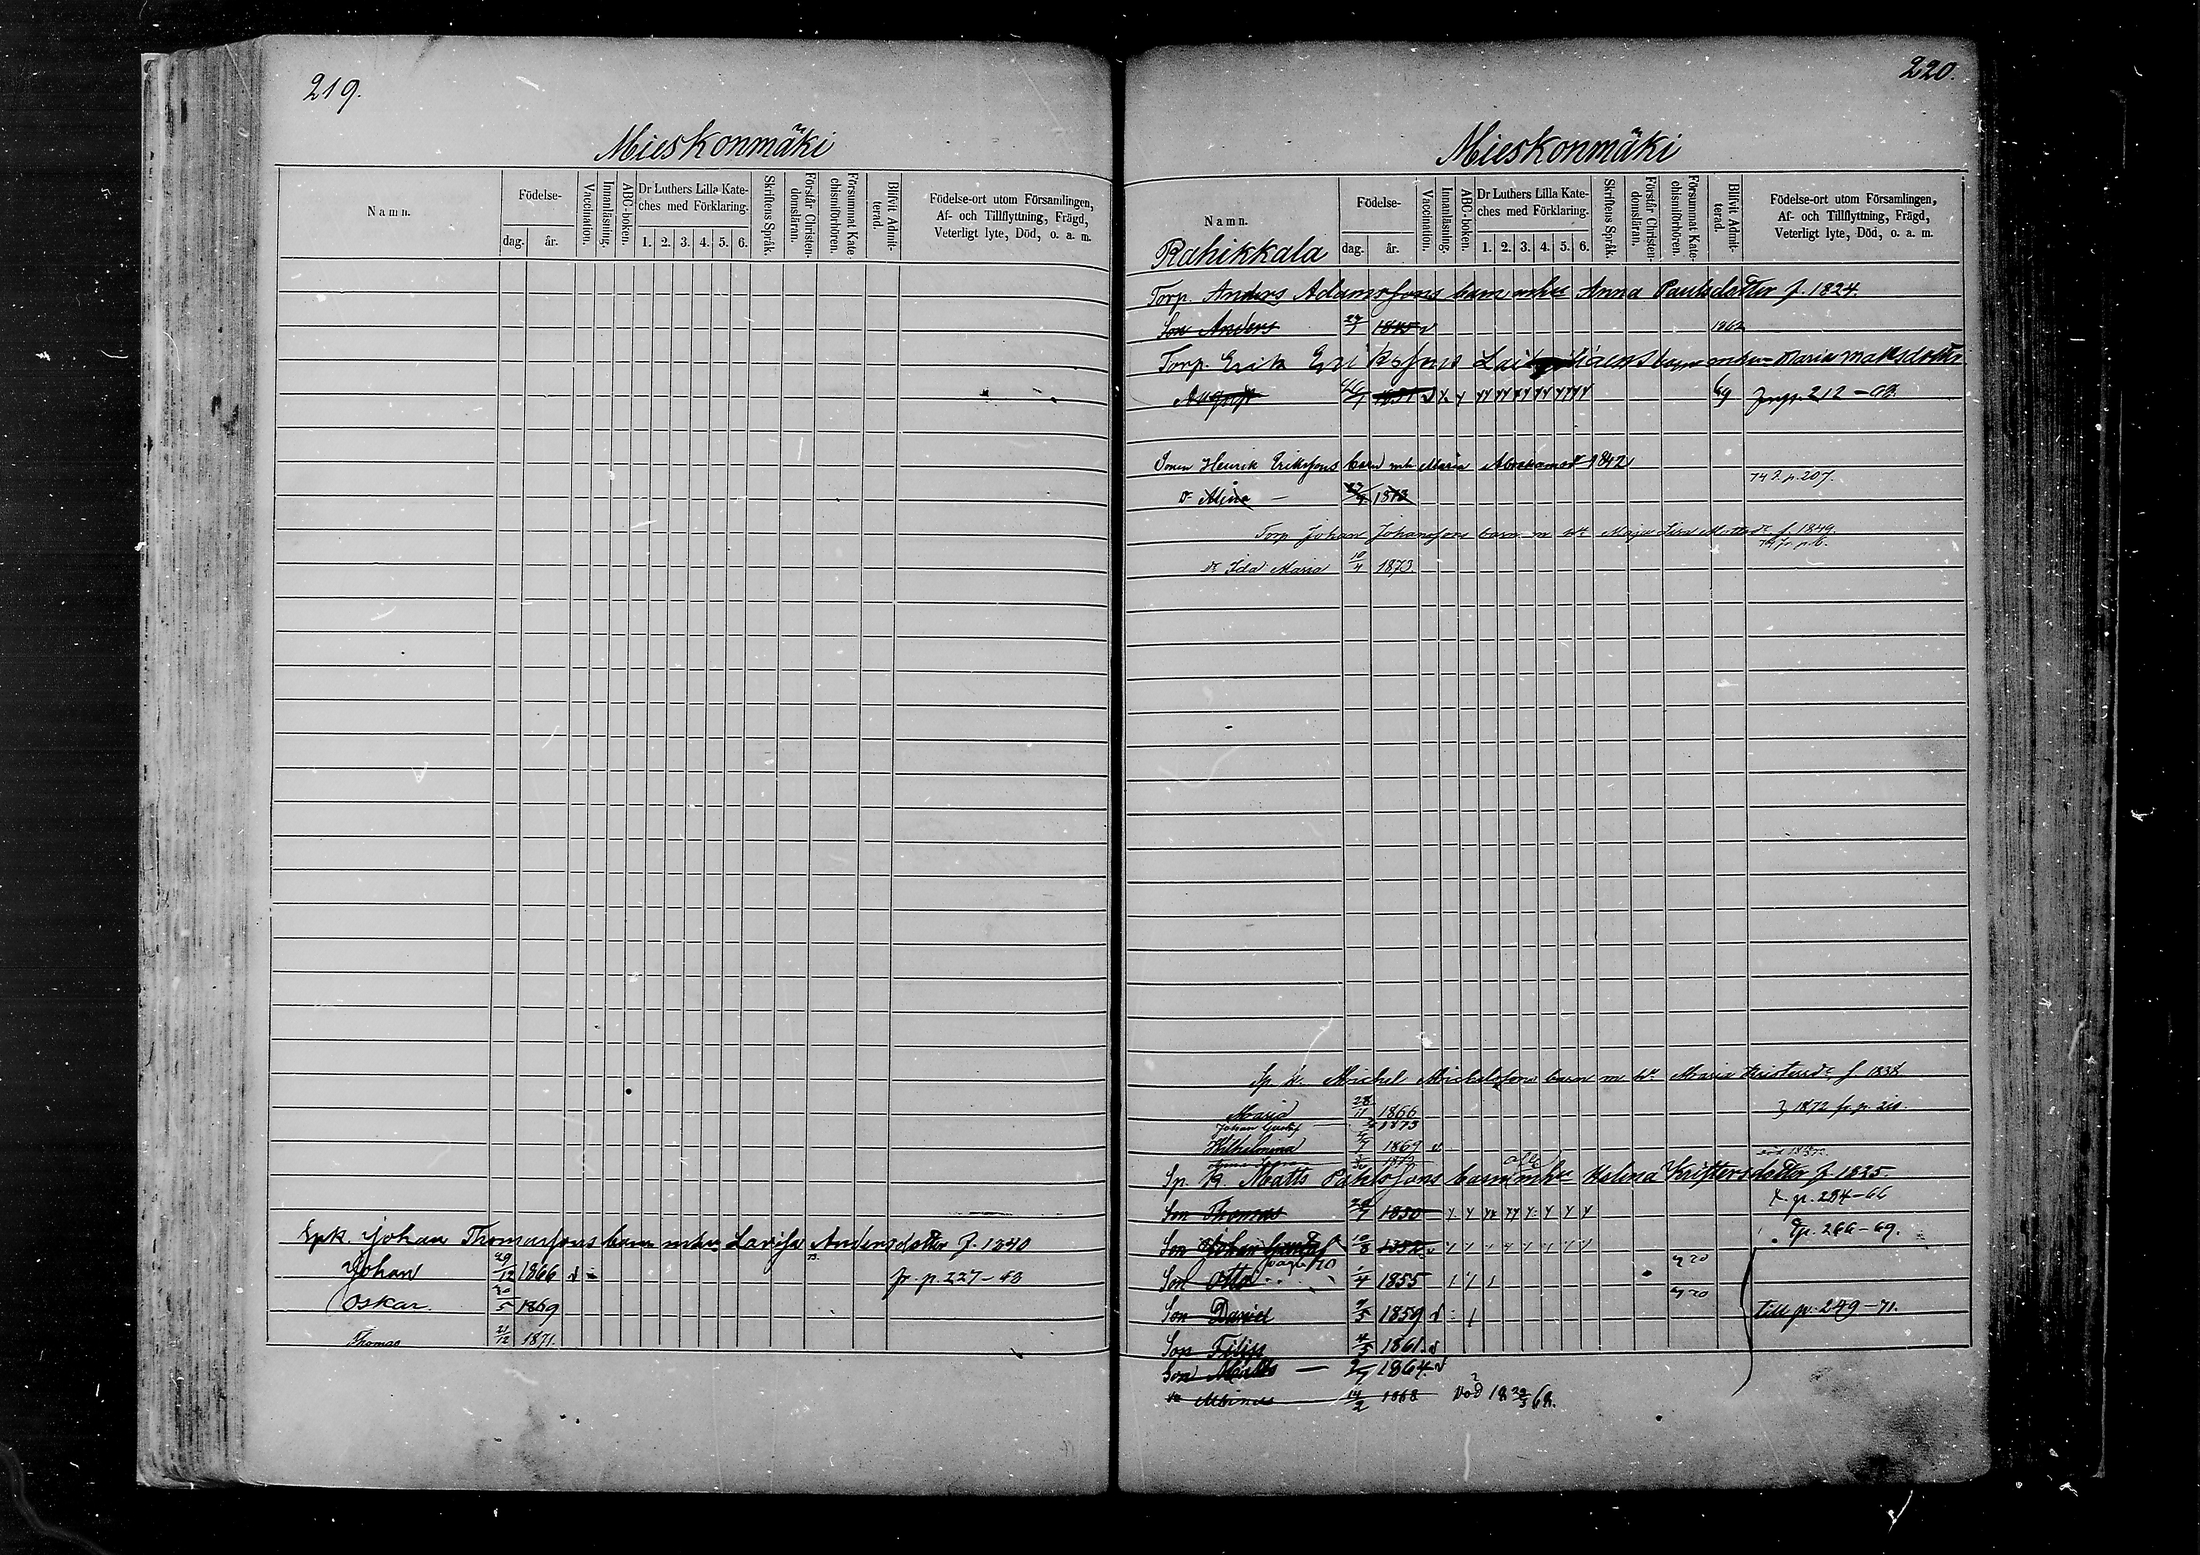 219.
Mieskonmäki
Namn.
Födelse-
dag. år.
Vaccination.
Innanläsning.
ABC-boken.
Dr Luthers Lilla Kate-
ches med Förklaring.
1. 2. 3. 4. 5. 6.
Skriftens Språk.
Förstår Christen-
domsläran.
Försummat Kate-
chismiförhören.
Blifvit Admit-
terad.
Födelse-ort utom Församlingen,
Af- och Tillflyttning, Frägd,
Veterligt lyte, Död, o. a. m.
Spk. Johan Thomassons barn m hu Lovisa Andersdotter f. 1840
Johan 29/12 1866 fr. p. 227-
Oskar. 20/5 1869
Thomas 21/12 1871.
220.
Mieskonmäki
Namn.
Födelse-
dag. år.
Vaccination.
Innanläsning.
ABC-boken.
Dr Luthers Lilla Kate-
ches med Förklaring.
1. 2. 3. 4. 5. 6.
Skriftens Språk.
Förstår Christen-
domsläran.
Försummat Kate-
chismiförhören.
Blifvit Admit-
terad.
Födelse-ort utom Församlingen,
Af- och Tillflyttning, Frägd,
Veterligt lyte, Död, o. a. m.
Rahikkala
Torp. Anders Adamssons barn m hu Anna Paulsdotter f. 1824.
Son Anders 1845 v 1862
Torp. Erik Erikssons barn m hu Maria Matsdotter
August 1851 69 212-
Sonen Henrik Erikssons barn m h Maria Abrahamsdr 1842
74 p. 207.
dr Mina 1873
Torp. Johan Johanssons barn m hu Maja Lisa Mattsdr f. 1849.
dr Ida Maria 10/11 1873.
Sp. k. Michel Michelssons barn m hu Maria Kristersdr f 1838
Maria 28/11 1866 1872 fr. p. 210.
Johan Gustaf 1873
Wilhelmina 1869 v
Sp. k. Matts Pahlssons barn m hu Helena Kristersdotter f. 1825
Son Thomas 1850 p. 234-66
Son Johan Gustaf 10/8 1852 v p. 266-69.
Son Otto 1/4 1855
Son David 9/5 1859 v till p. 249-71.
Son Filip 4/5 1861. v
Son Matts 1864. v
14/2 1868 död 18